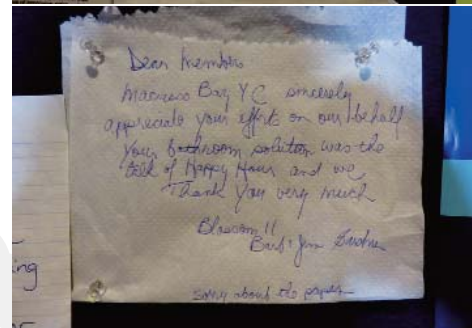 Dear Members
Bay YC sincerely
appreciate your efforts on our behalf
Your bathroom solution was the
talk of Happy Hour and we
Thank you very much
Blossom II
Barb & Jim
Sorry about the paper
ing